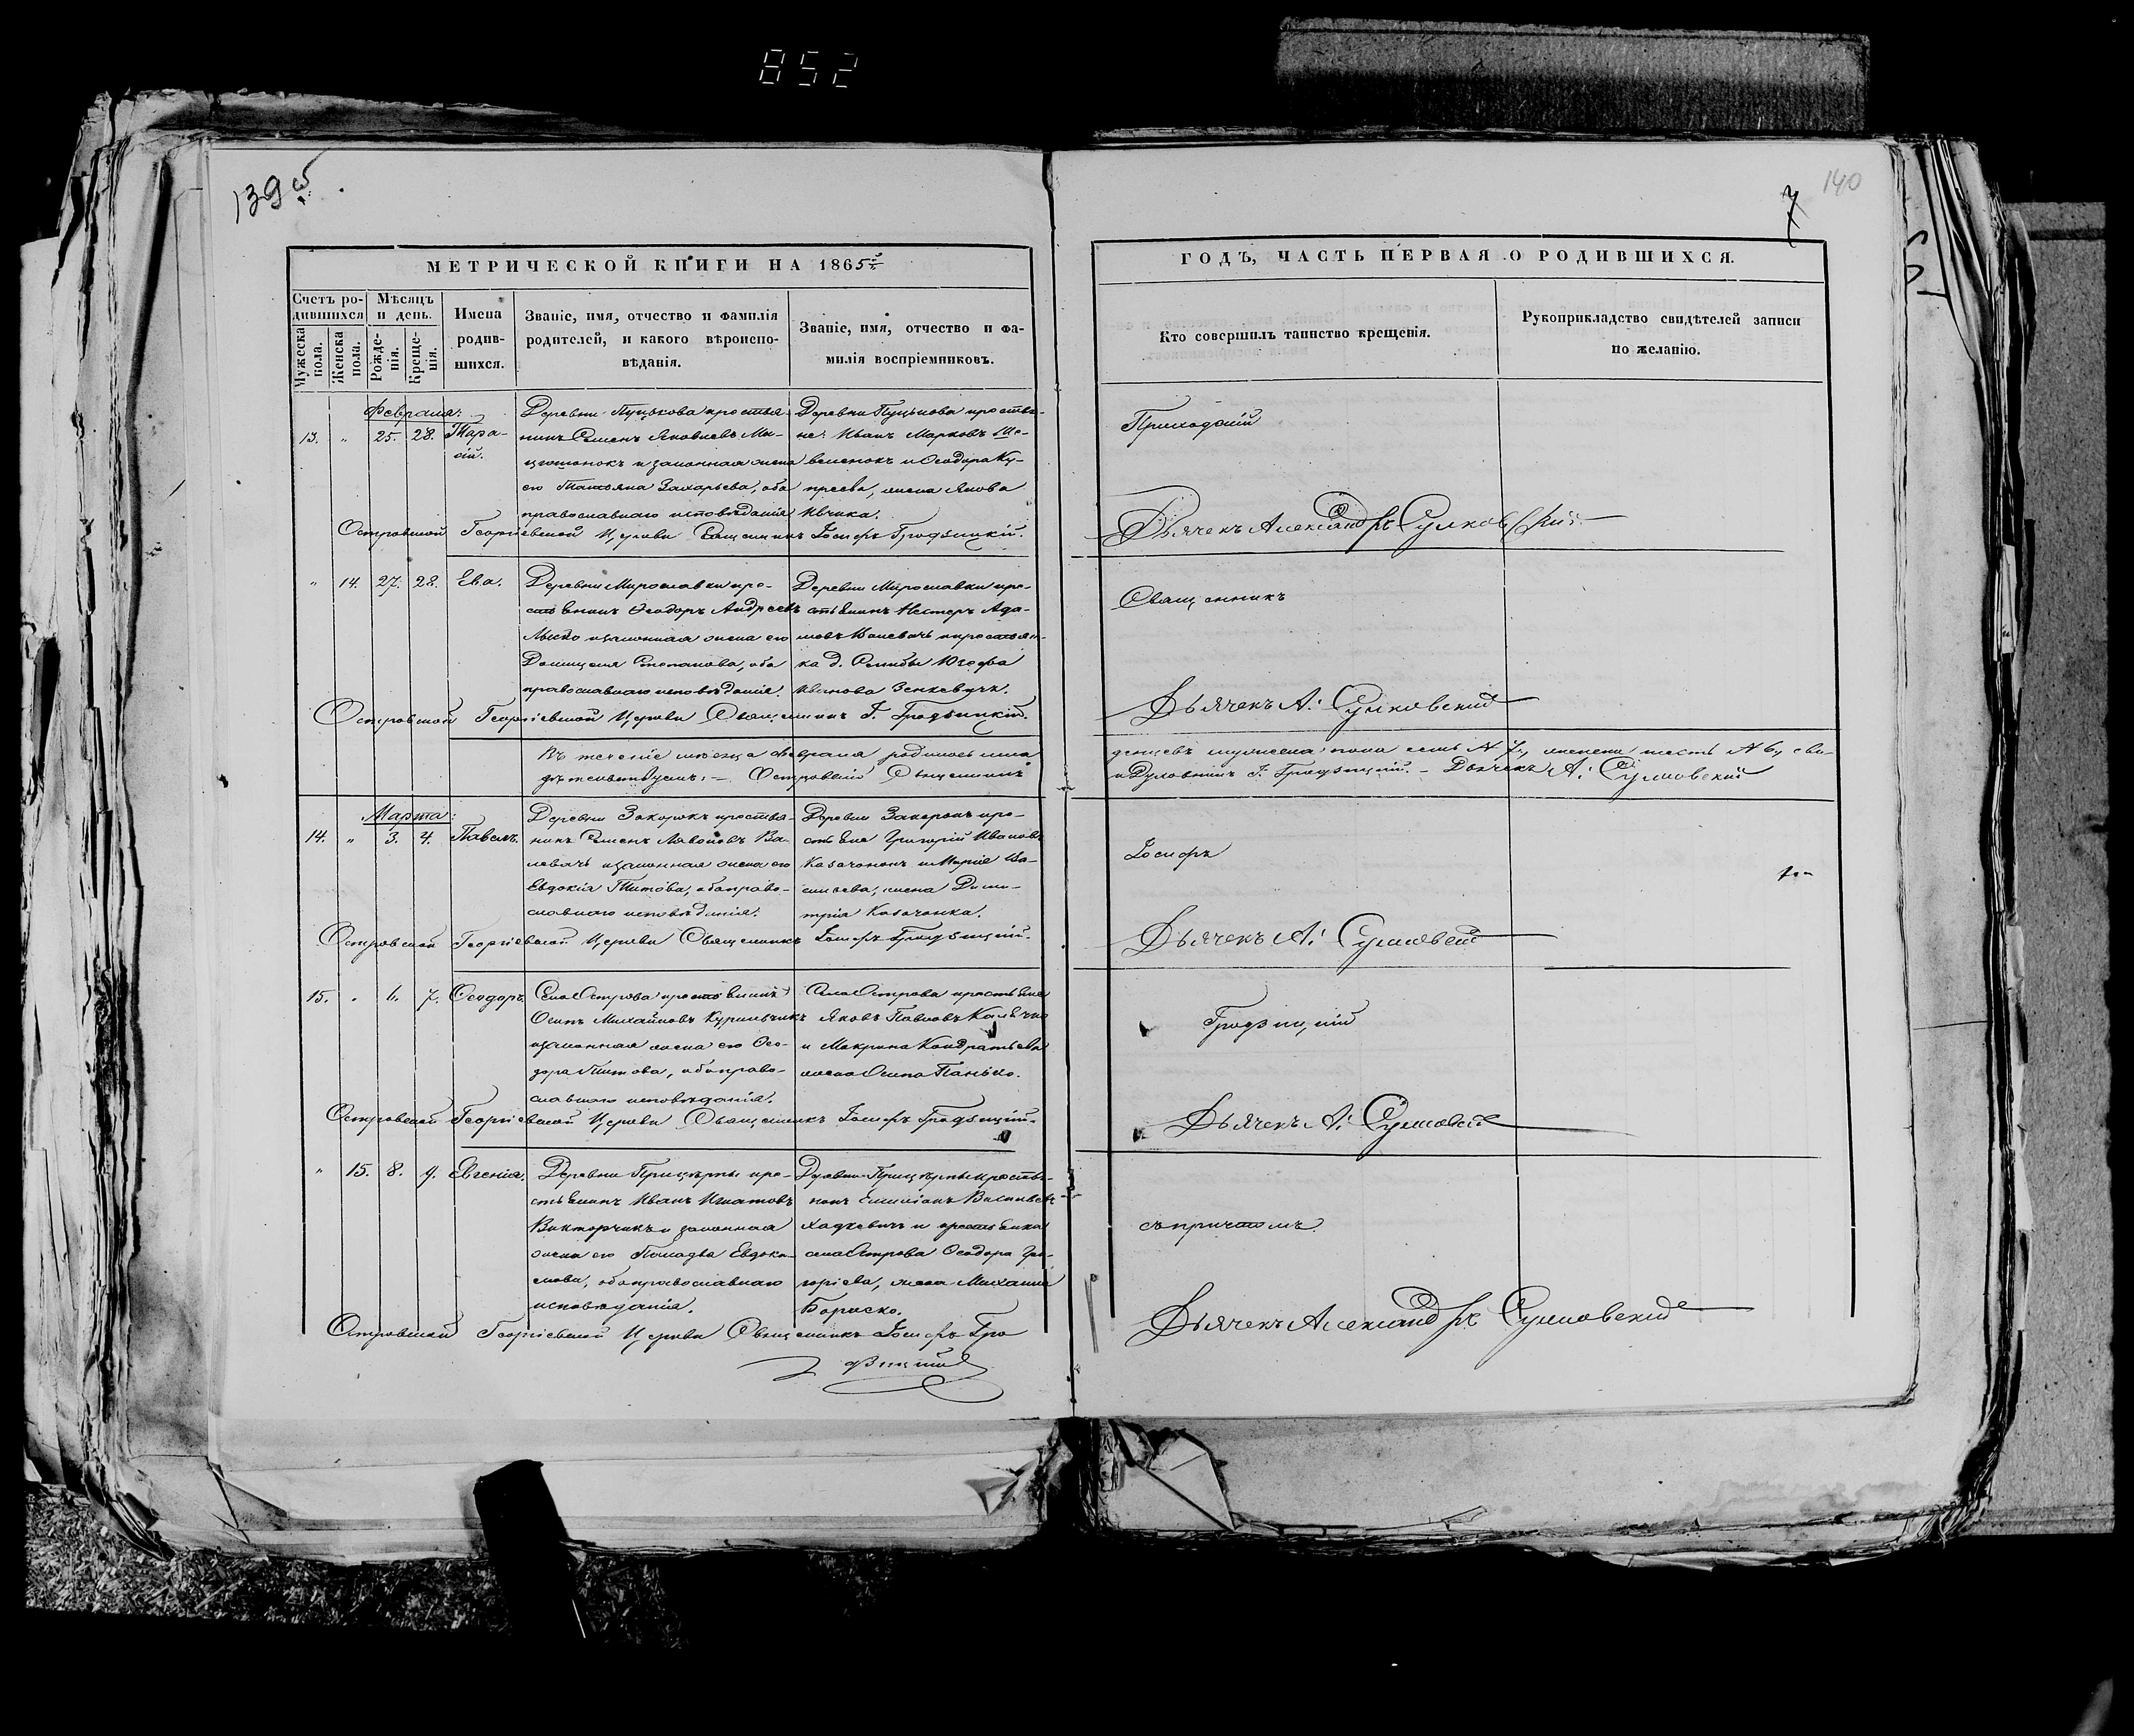 852
139 об.
140
7
МЕТРИЧЕСКОЙ КНИГИ НА 1865й
Счетъ ро-
дившихся
Мужеска пола.
Женска пола.
Мѣсяцъ
и день.
Рожде-
нія.
Креще-
нія.
Имена
родив-
шихся.
Званіе, имя, отчество и фамилія
родителей, и какого вѣроиспо-
вѣданія.
Званіе, имя, отчество и фа-
милія воспріемниковъ.
Февраля:
13. " 25. 28. Тара-
сій.
Деревни Пуцькова крестья-
нинъ Семенъ Яковлевъ
и законная жена
его Татьяна Захарьева, оба
православнаго исповѣданія
Деревни Пуцькова крестья-
не: Иванъ Марковъ Ше-
веленокъ и Ѳеодора Ку-
преева, жена Якова
Ивчика.
Островской Георгіевской Церкви Священникъ Іосифъ Гродзицкій.
" 14. 27. 28. Ева.
Деревни Мирославки кре-
стьянинъ Ѳеодоръ Андреевъ
и законная жена его
Домицеля Степанова, оба
православнаго исповѣданія.
Деревни Мирославки кре-
стьянинъ Нестеръ Ада-
мовъ и крестьян-
ка д. Юзефа
Иванова Зенкевичъ.
Островской Георгіевской Церкви Священникъ І. Гродзицкій.
Въ теченіе мѣсяца Февраля родилось мла
Островскій Священникъ
Марта:
14. " 3. 4. Павелъ.
Деревни Закорокъ крестья-
нинъ Семенъ Ва-
левачъ и законная жена его
Евдокія Титова, оба право-
славнаго исповѣданія.
Деревни Закорокъ кре-
стьяне Григорій Ивановъ
Казачонокъ и Марія Ва-
сильева, жена Дими-
трія Казачонка.
Островской Георгіевской Церкви Священникъ Іосифъ Гродзицкій.
15. " 6. 7. Ѳеодоръ.
Села Острова крестьянинъ
Осипъ Михайловъ Курильчикъ
и законная жена его Ѳео-
дора Титова, оба право-
славнаго исповѣданія.
Села Острова крестьяне
Яковъ Павловъ
и Макрина Кондратьева
жена Осипа Панько.
Островской Георгіевской Церкви Священникъ Іосифъ Гродзицкій.
" 15. 8. 9. Евгенія.
Деревни Прицѣрпы кре-
стьянинъ Иванъ Игнатовъ
Викторчикъ и законная
жена его Евдоки-
мова, оба православнаго
исповѣданія.
Деревни Прицѣрпы крестья-
нинъ Емиліанъ Васильевъ
Хадкевичъ и крестьянка
села Острова Ѳеодора Гри-
горіева, жена Михаила
Бориско.
Островской Георгіевской Церкви Священникъ Іосифъ Гро
дзицкій
ГОДЪ, ЧАСТЬ ПЕРВАЯ О РОДИВШИХСЯ.
Кто совершилъ таинство крещенія.
Рукоприкладство свидѣтелей записи
по желанію.
Приходскій
Дьячекъ Александръ Сулковскій.
Священникъ
Дьячекъ А: Сулковскій
денцевъ мужеска пола семь № 7, женска шесть № 6,
І. Гродзицкій. – Дьячекъ А: Сулковскій
Іосифъ
Дьячекъ А: Сулковскій
Гродзицкій
Дьячекъ А: Сулковскій
съ причтомъ.
Дьячекъ Александръ Сулковскій